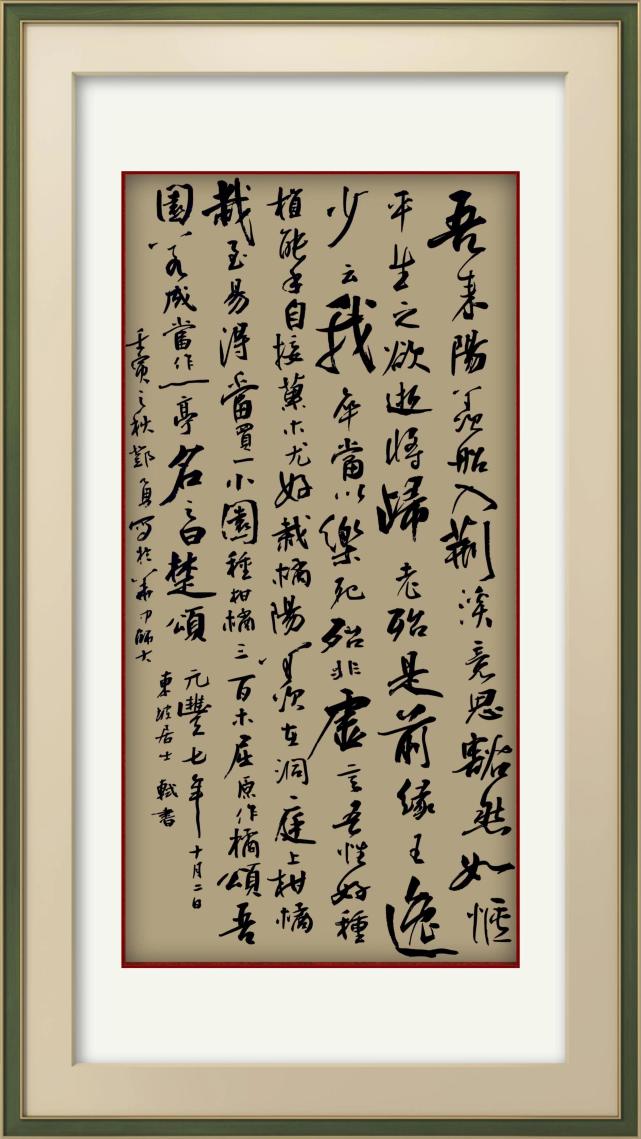 吾来陽羨船入荆溪意思豁然如愜
平生之欲逝将歸老殆是前緣王逸
少云我卒當以樂死殆非虚言吾性好種
植能手自接菓木尤好栽橘陽羨在洞庭上柑橘
栽至易得當買一小園種柑橘三百本屈原作橘頌吾
園若成當作一亭名之曰楚頌
元豐七年十月二日
東坡居士軾書
壬寅之秋鄧寫於華中師大